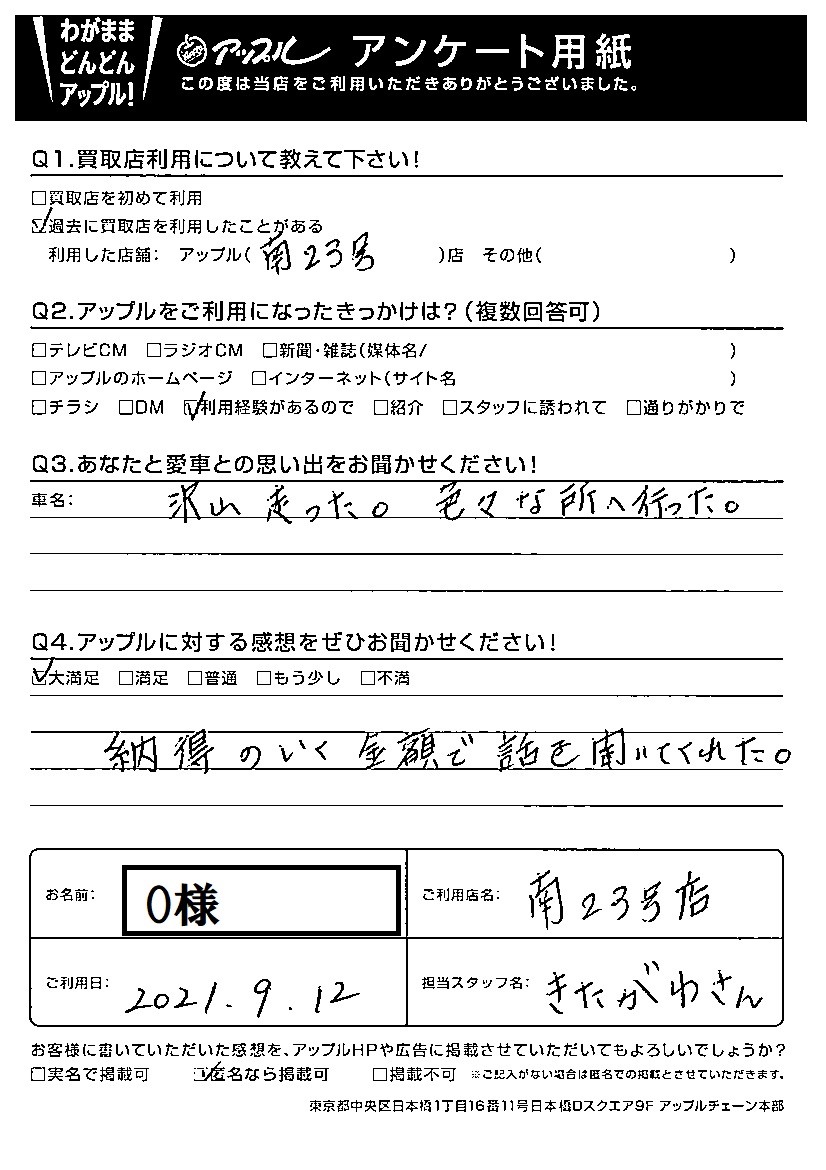 わがまま
どんどん
アップル!
アップル アンケート用紙
この度は当店をご利用いただきありがとうございました。
Q1.買取店利用について教えて下さい!
□買取店を初めて利用
☑過去に買取店を利用したことがある
利用した店舗: アップル(南23号)店 その他( )
Q2.アップルをご利用になったきっかけは?(複数回答可)
□テレビCM □ラジオCM □新聞・雑誌(媒体名/ )
□アップルのホームページ □インターネット(サイト名 )
□チラシ □DM ☑利用経験があるので □紹介 □スタッフに誘われて □通りがかりで
Q3.あなたと愛車との思い出をお聞かせください!
車名: 沢山走った。色々な所へ行った。
Q4.アップルに対する感想をぜひお聞かせください!
☑大満足 □満足 □普通 □もう少し □不満
納得のいく金額で話を聞いてくれた。
お名前: O様
ご利用店名: 南23号店
ご利用日: 2021.9.12
担当スタッフ名: きたがわさん
お客様に書いていただいた感想を、アップルHPや広告に掲載させていただいてもよろしいでしょうか?
□実名で掲載可 ☑匿名なら掲載可 □掲載不可 ※ご記入がない場合は匿名での掲載とさせていただきます。
東京都中央区日本橋1丁目16番11号日本橋Dスクエア9F アップルチェーン本部